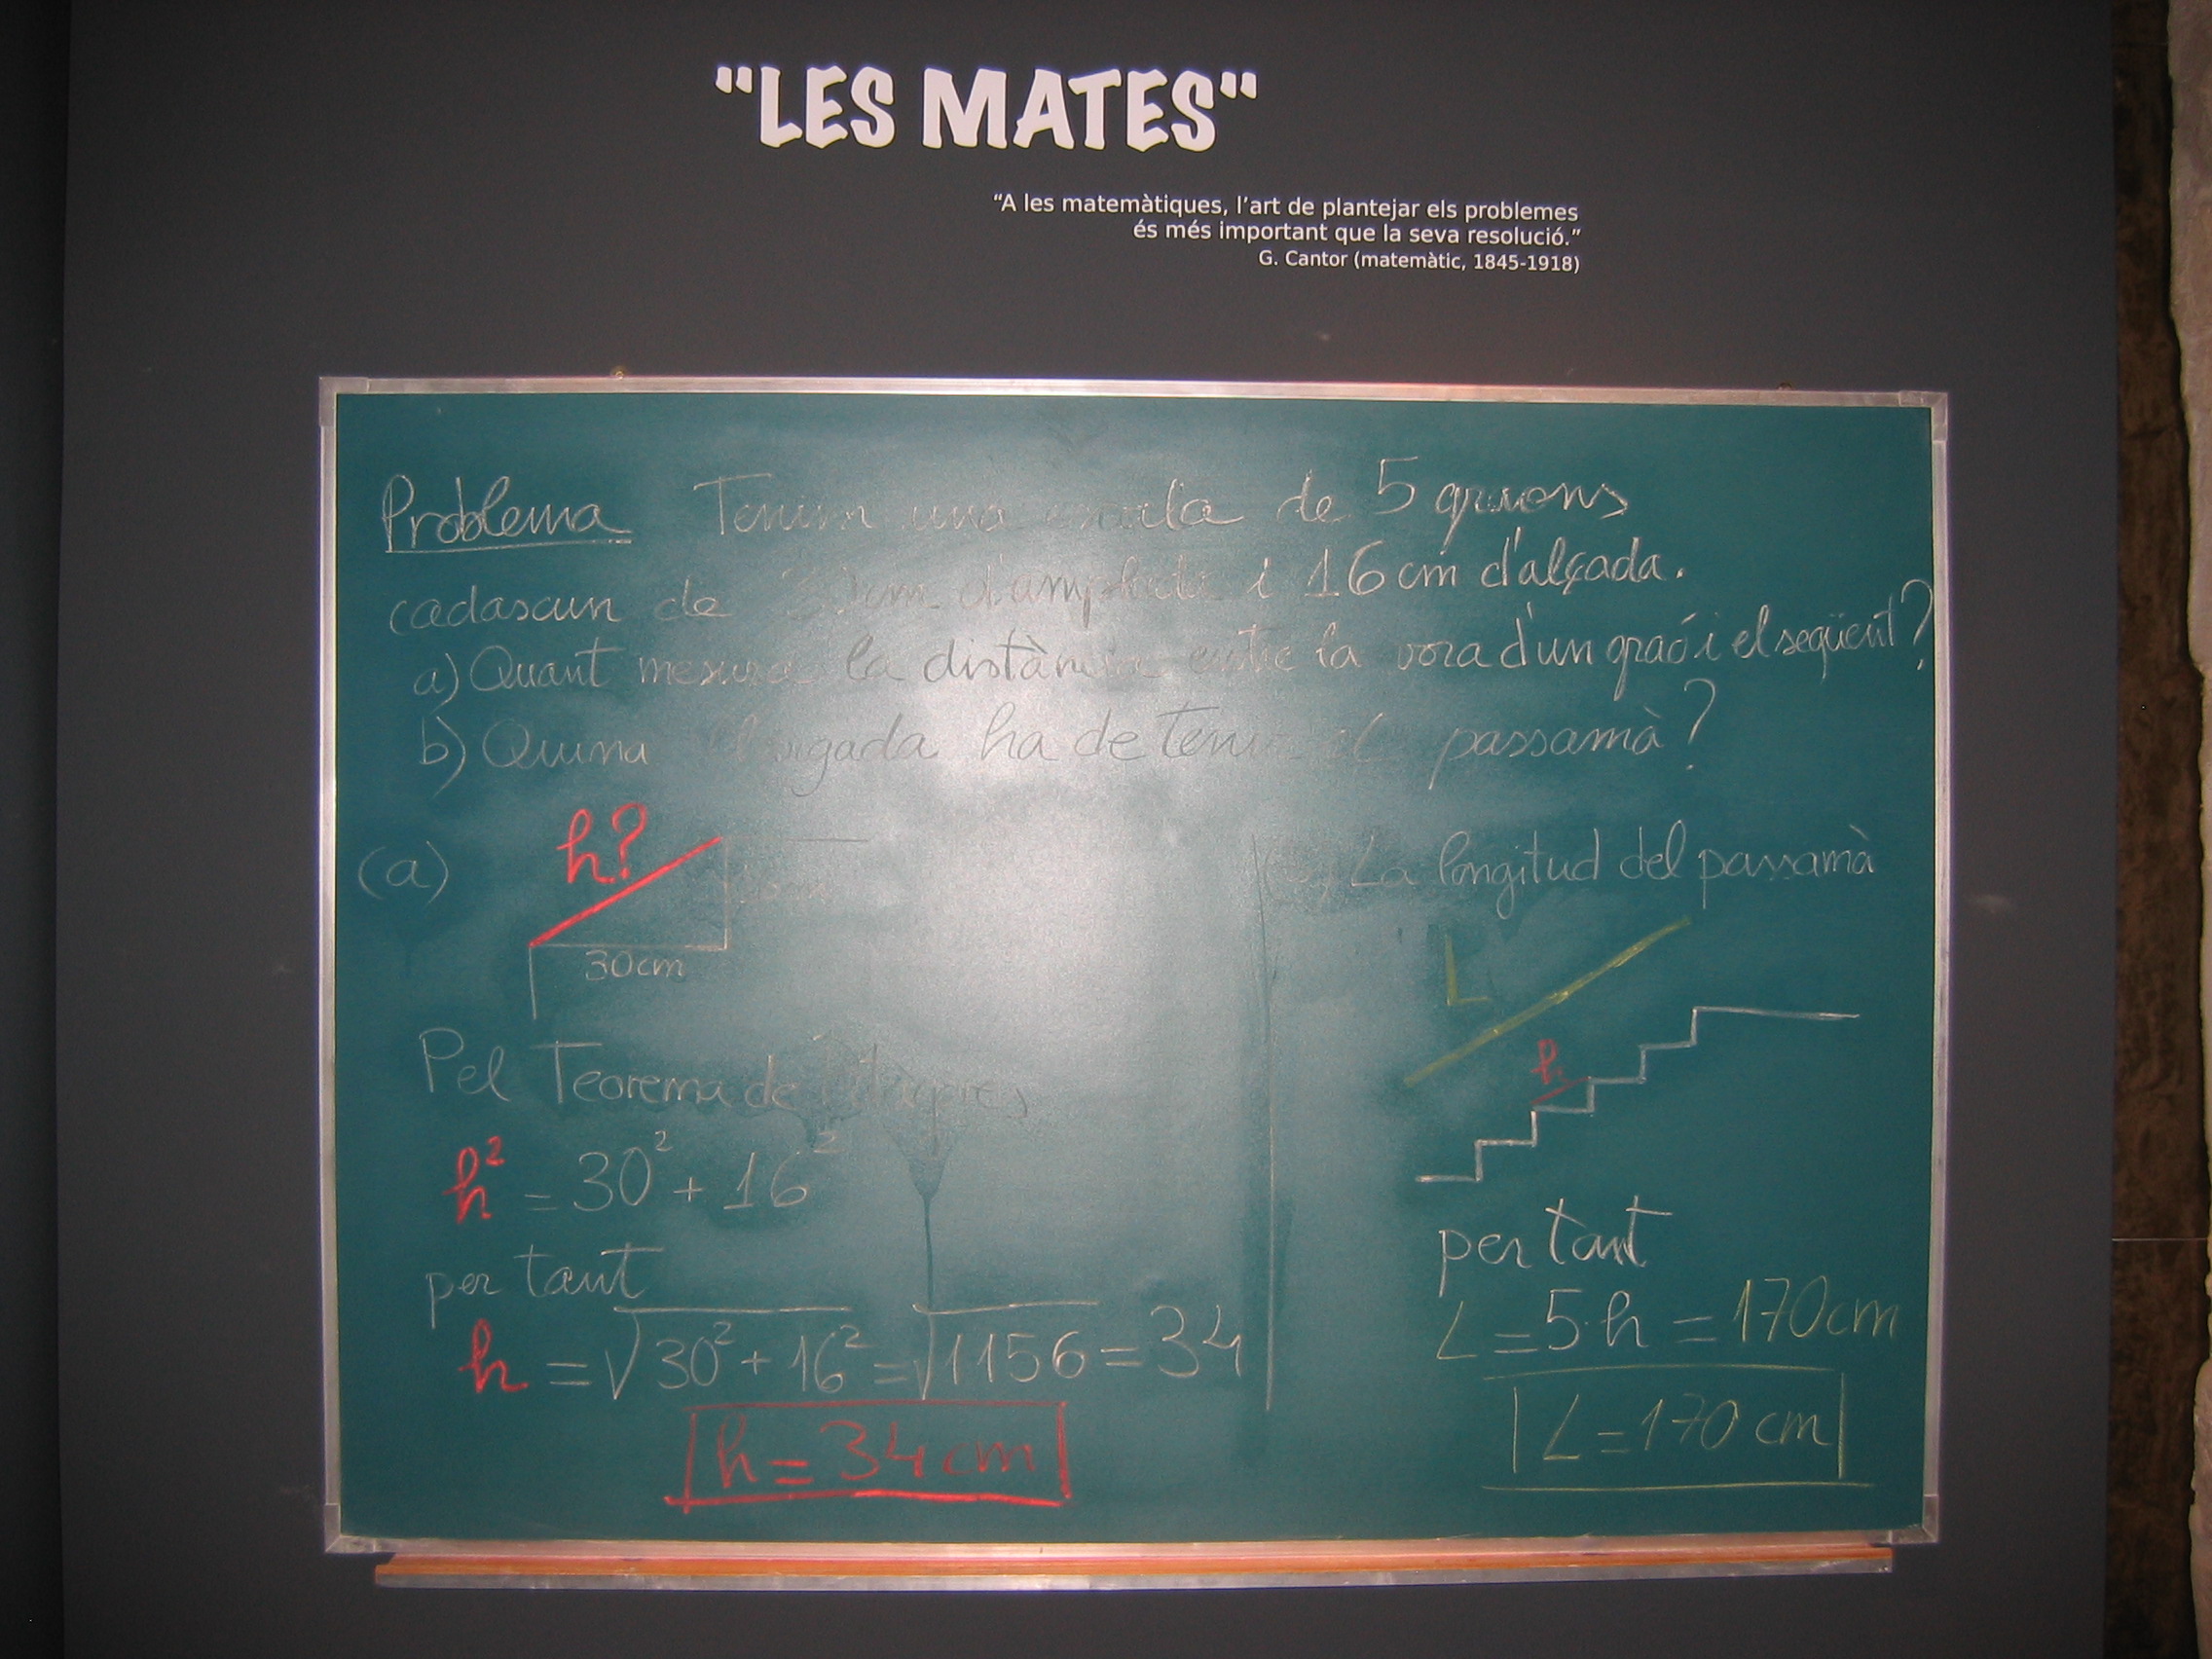 "LES MATES"
“A les matemàtiques, l’art de plantejar els problemes
és més important que la seva resolució.”
G. Cantor (matemàtic, 1845-1918)
Problema Tenim una escala de 5 graons
cadascun de 30cm d'amplada i 16cm d'alçada.
a) Quant mesura la distància entre la vora d'un graó i el següent?
b) Quina llargada ha de tenir el passamà?
(a)
h?
16cm
30cm
Pel Teorema de Pitàgores
h² = 30² + 16²
per tant
h = √30² + 16² = √1156 = 34
h = 34cm
(b) La longitud del passamà
L
h
per tant
L = 5·h = 170cm
L = 170 cm